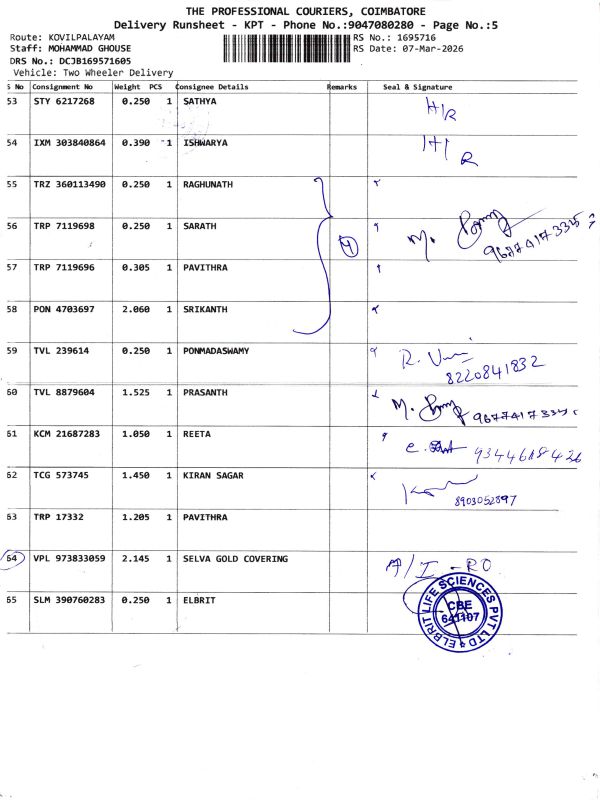 THE PROFESSIONAL COURIERS, COIMBATORE
Delivery Runsheet - KPT - Phone No.:9047080280 - Page No.:5
Route: KOVILPALAYAM RS No.: 1695716
Staff: MOHAMMAD GHOUSE RS Date: 07-Mar-2026
DRS No.: DCJB169571605
Vehicle: Two Wheeler Delivery
S No Consignment No Weight PCS Consignee Details Remarks Seal & Signature
53 STY 6217268 0.250 1 SATHYA H/R
54 IXM 303840864 0.390 1 ISHWARYA H/R
55 TRZ 360113490 0.250 1 RAGHUNATH
56 TRP 7119698 0.250 1 SARATH 4 M.
57 TRP 7119696 0.305 1 PAVITHRA
58 PON 4703697 2.060 1 SRIKANTH
59 TVL 239614 0.250 1 PONMADASWAMY R.
8220841832
60 TVL 8879604 1.525 1 PRASANTH M.
61 KCM 21687283 1.050 1 REETA e. 9344618426
62 TCG 573745 1.450 1 KIRAN SAGAR
8903052897
63 TRP 17332 1.205 1 PAVITHRA
64 VPL 973833059 2.145 1 SELVA GOLD COVERING A/I - RO
65 SLM 390760283 0.250 1 ELBRIT
ELBRIT LIFE SCIENCES PVT LTD
CBE
641107